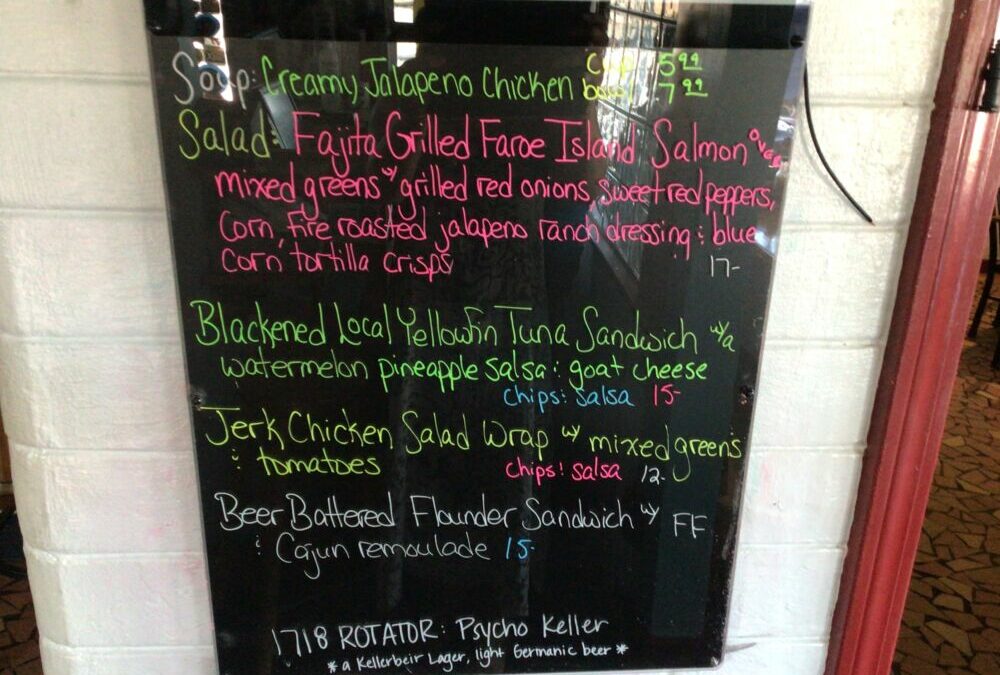 Soup: Creamy Jalapeno Chicken cup 5.99
bowl 7.99
Salad: Fajita Grilled Faroe Island Salmon over
mixed greens w/ grilled red onions, sweet red peppers,
corn, fire roasted jalapeno ranch dressing & blue
corn tortilla crisps 17-
Blackened Local Yellowfin Tuna Sandwich w/a
watermelon pineapple salsa & goat cheese
chips & salsa 15-
Jerk Chicken Salad Wrap w/ mixed greens
& tomatoes chips & salsa 12-
Beer Battered Flounder Sandwich w/ FF
& Cajun remoulade 15-
1718 ROTATOR: Psycho Keller
* a Kellerbeir Lager, light Germanic beer *